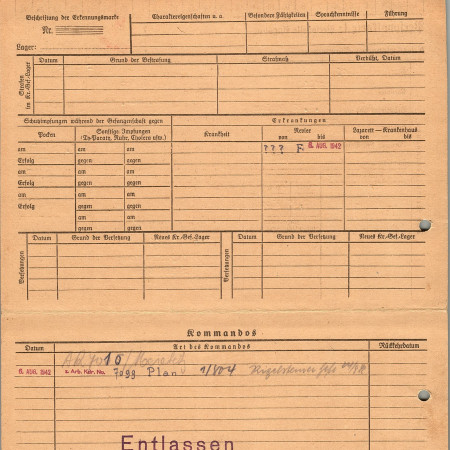 Beschriftung der Erkennungsmarke
Nr.
Lager:
Charaktereigenschaften u. a.
Besondere Fähigkeiten
Sprachkenntnisse
Führung
Strafen im Kr.-Gef.-Lager
Datum
Grund der Bestrafung
Strafmaß
Verbüßt, Datum
Schutzimpfungen während der Gefangenschaft gegen
Erkrankungen
Pocken
Sonstige Impfungen
(Ty.-Paraty., Ruhr, Cholera usw.)
Krankheit
Revier
von bis
Lazarett — Krankenhaus
von bis
am am am
??? F. 8. AUG. 1942
Erfolg gegen gegen
am am am
Erfolg gegen gegen
am am am
Erfolg gegen gegen
am am
gegen gegen
Versetzungen
Datum
Grund der Versetzung
Neues Kr.-Gef.-Lager
Versetzungen
Datum
Grund der Versetzung
Neues Kr.-Gef.-Lager
Kommandos
Datum
Art des Kommandos
Rückkehrdatum
8. AUG. 1942 z. Arb. Kdr. No. 7099 Plan 1/804
Entlassen